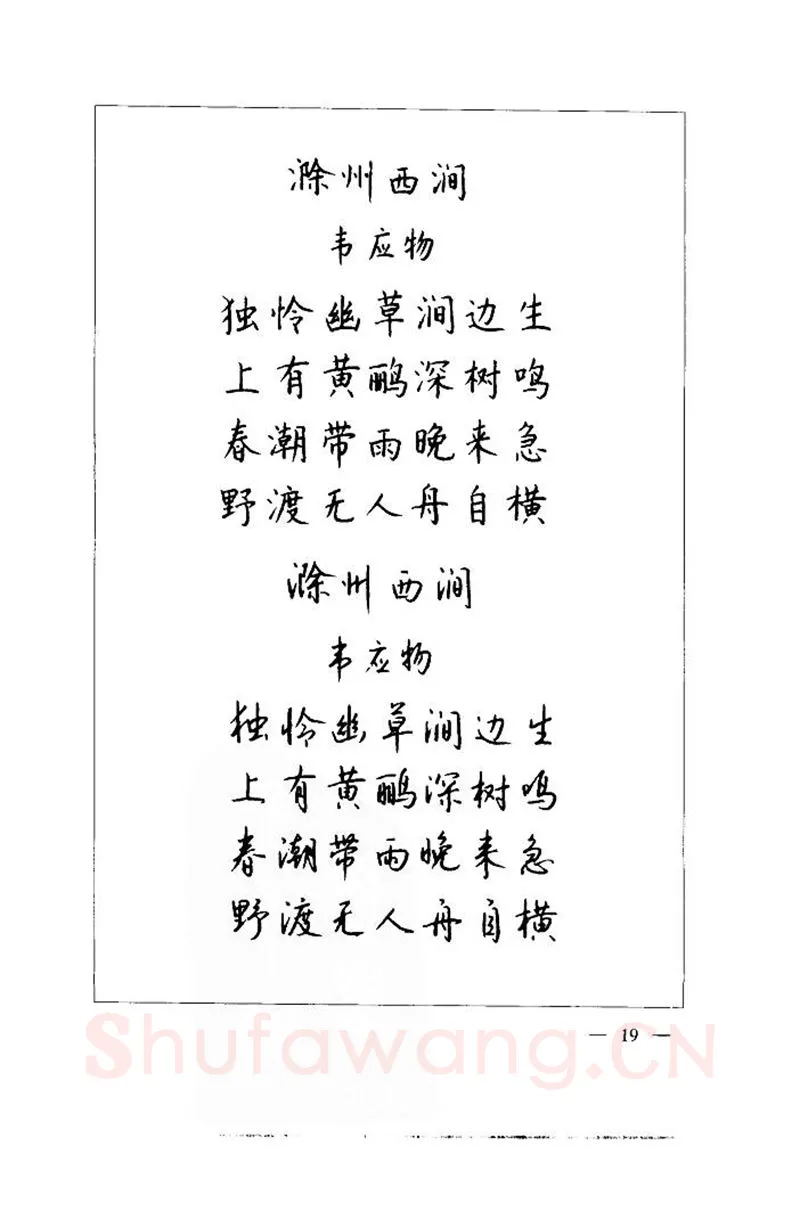 滁州西涧
韦应物
独怜幽草涧边生
上有黄鹂深树鸣
春潮带雨晚来急
野渡无人舟自横
滁州西涧
韦应物
独怜幽草涧边生
上有黄鹂深树鸣
春潮带雨晚来急
野渡无人舟自横
— 19 —
Shufawang.CN